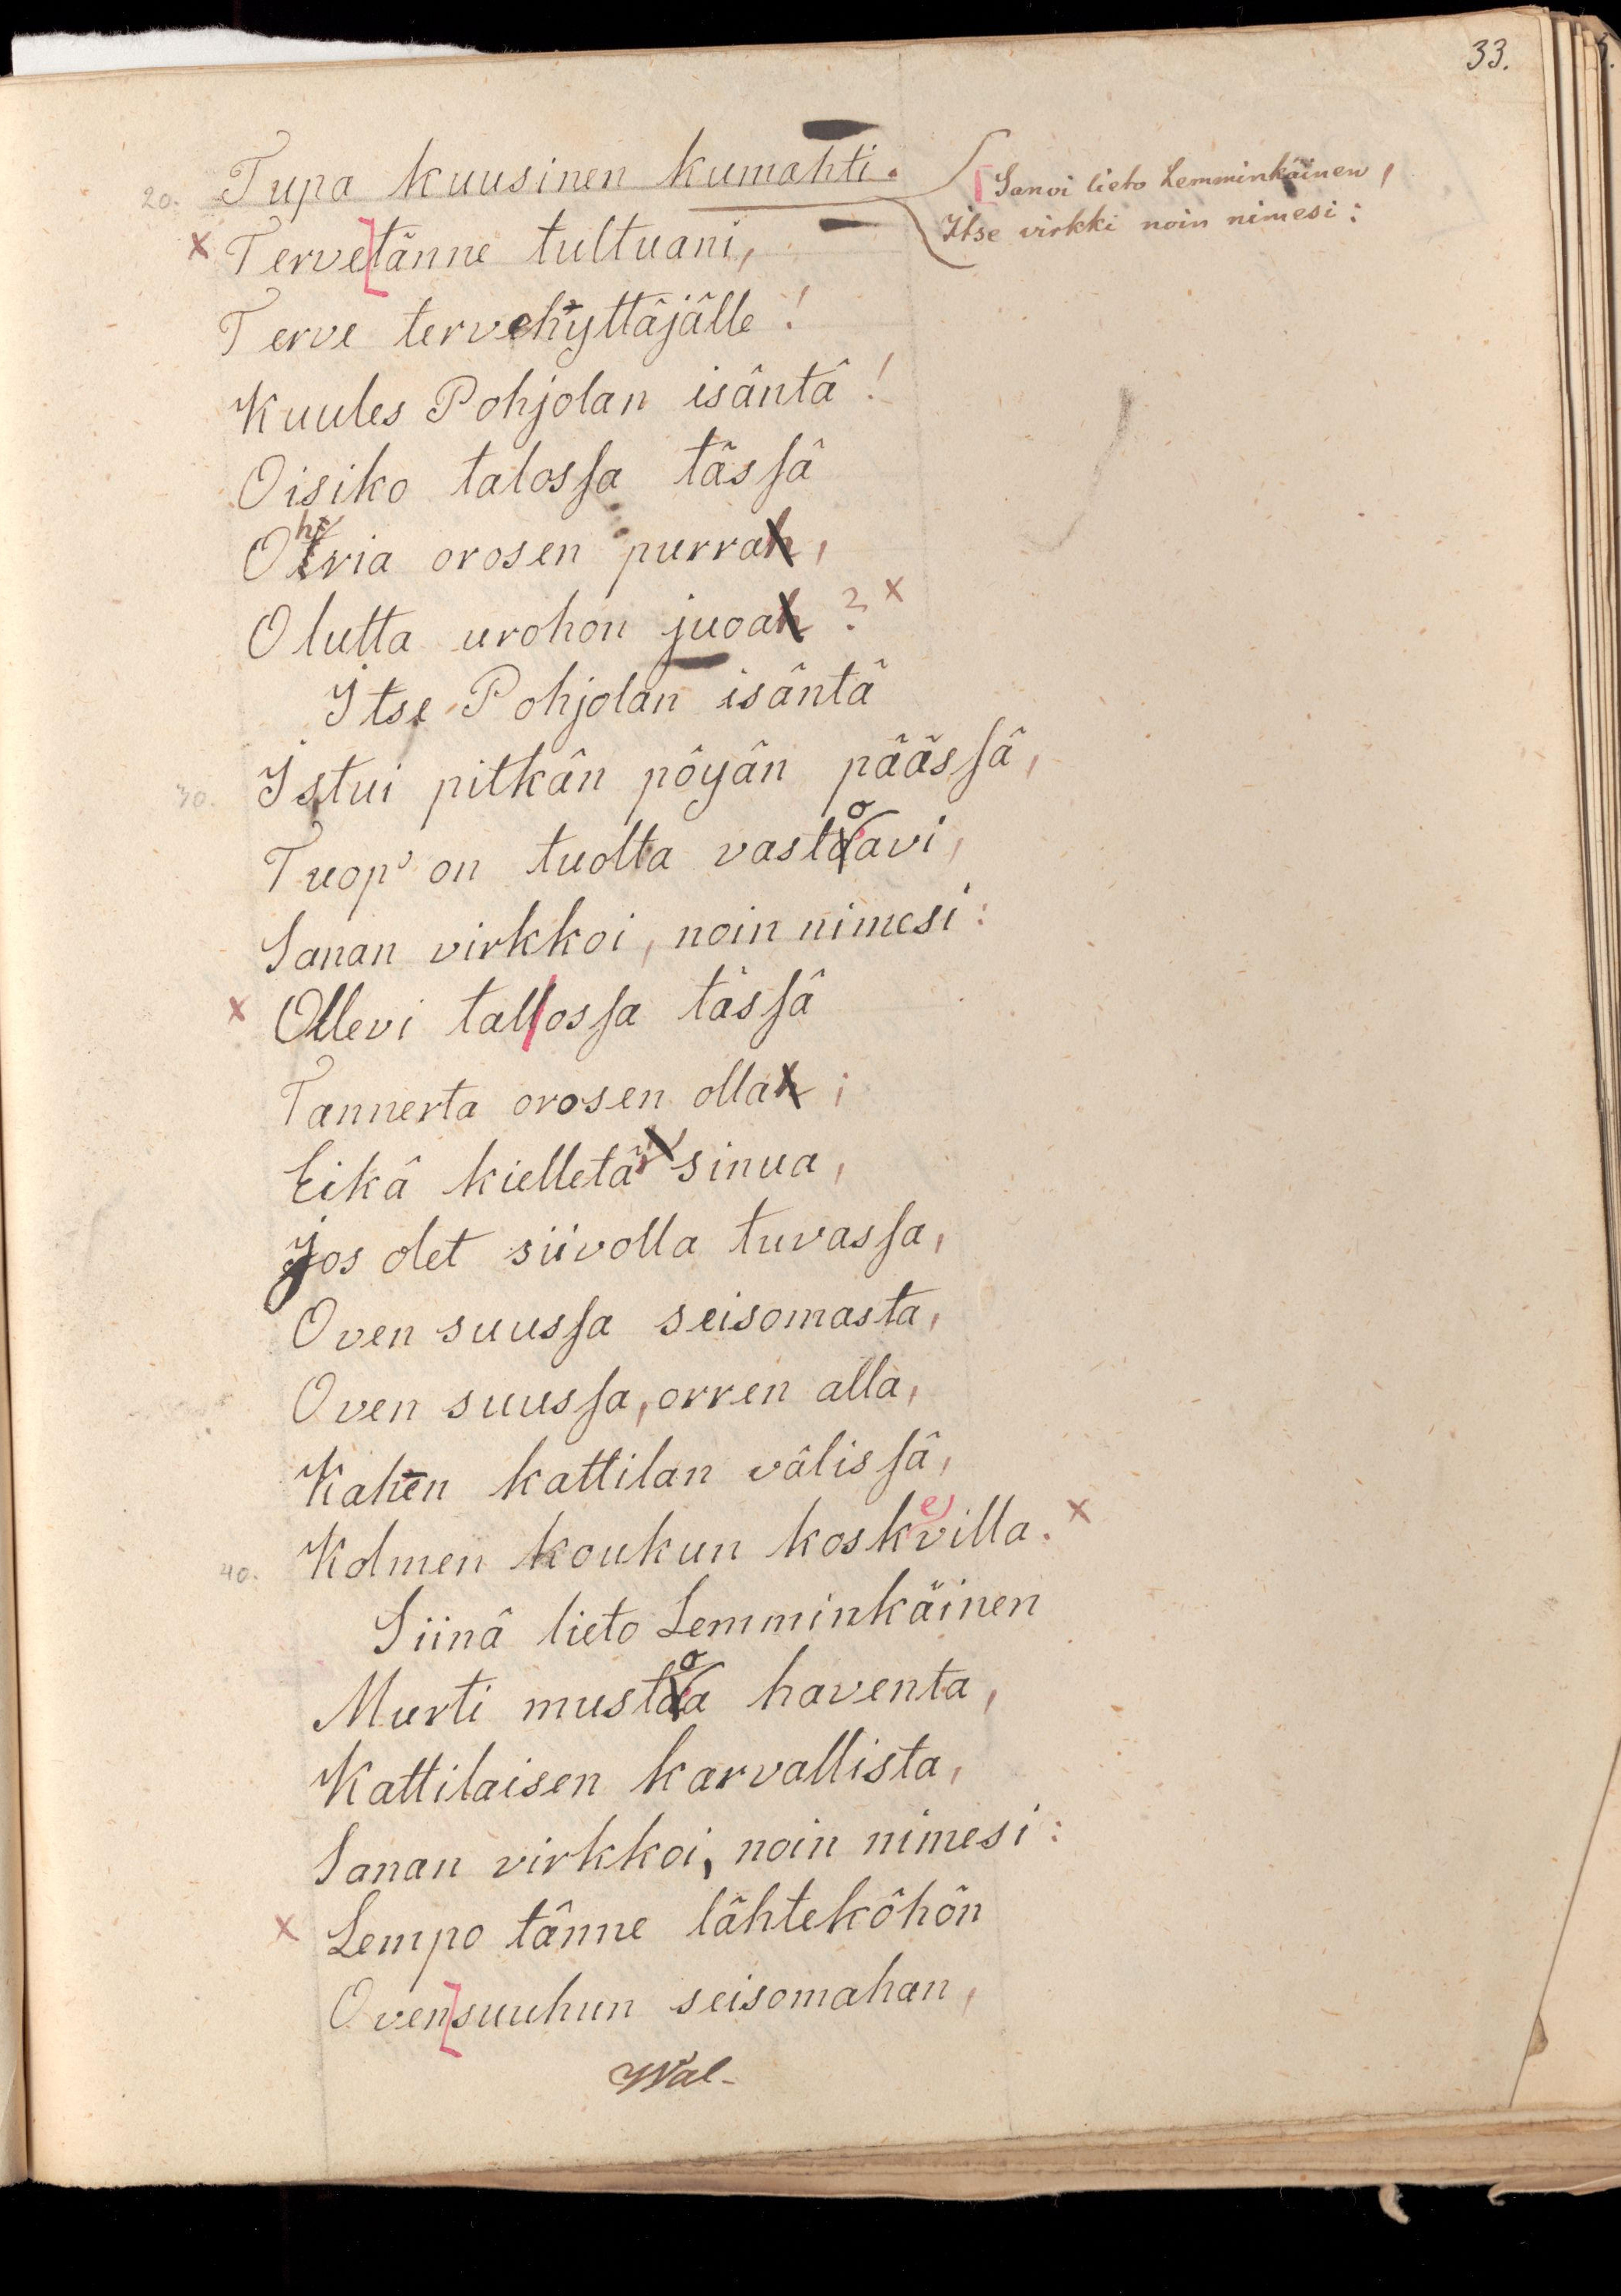 33.
20. Tupa kuusinen kumahti.
Sanoi lieto Lemminkäinen,
Itse virkki noin nimesi:
x Terve tänne tultuani,
Terve tervehyttäjälle!
Kuules Pohjolan isäntä!
Oisiko talossa tässä
Ohria orosen purra,
Olutta urohon juoa? x
Itse Pohjolan isäntä
30. Istui pitkän pöyän päässä,
Tuop' on tuolta vastoavi,
Sanan virkkoi, noin nimesi:
x Ollevi tallossa tässä
Tannerta orosen olla;
Eikä kielletä sinua,
Jos olet siivolla tuvassa,
Oven suussa seisomasta,
Oven suussa, orren alla,
Kahen kattilan välissä,
40. Kolmen koukun koskevilla. x
Siinä lieto Lemminkäinen
Murti mustoa haventa,
Kattilaisen karvallista,
Sanan virkkoi, noin nimesi:
x Lempo tänne lähteköhön
Oven suuhun seisomahan,
Wal-